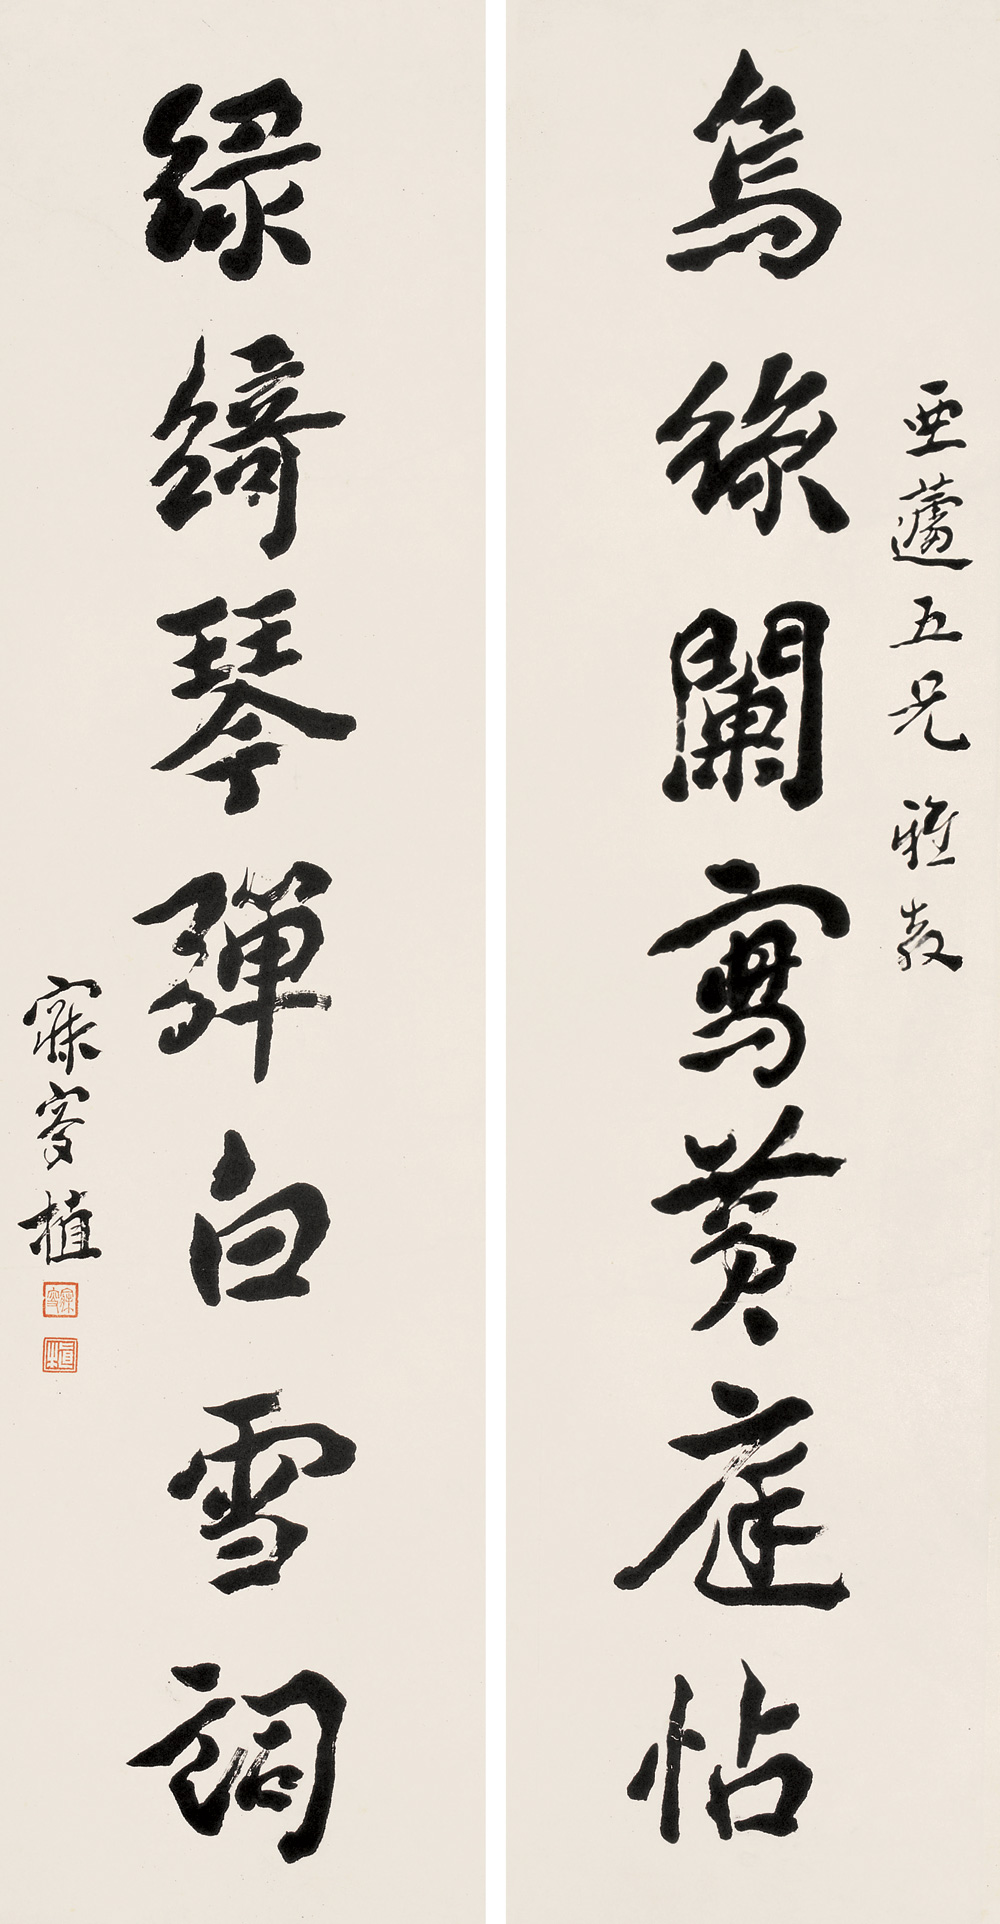 亞蘧五兄雅教
烏絲闌寫黃庭帖
綠綺琴彈白雪詞
寐叟植